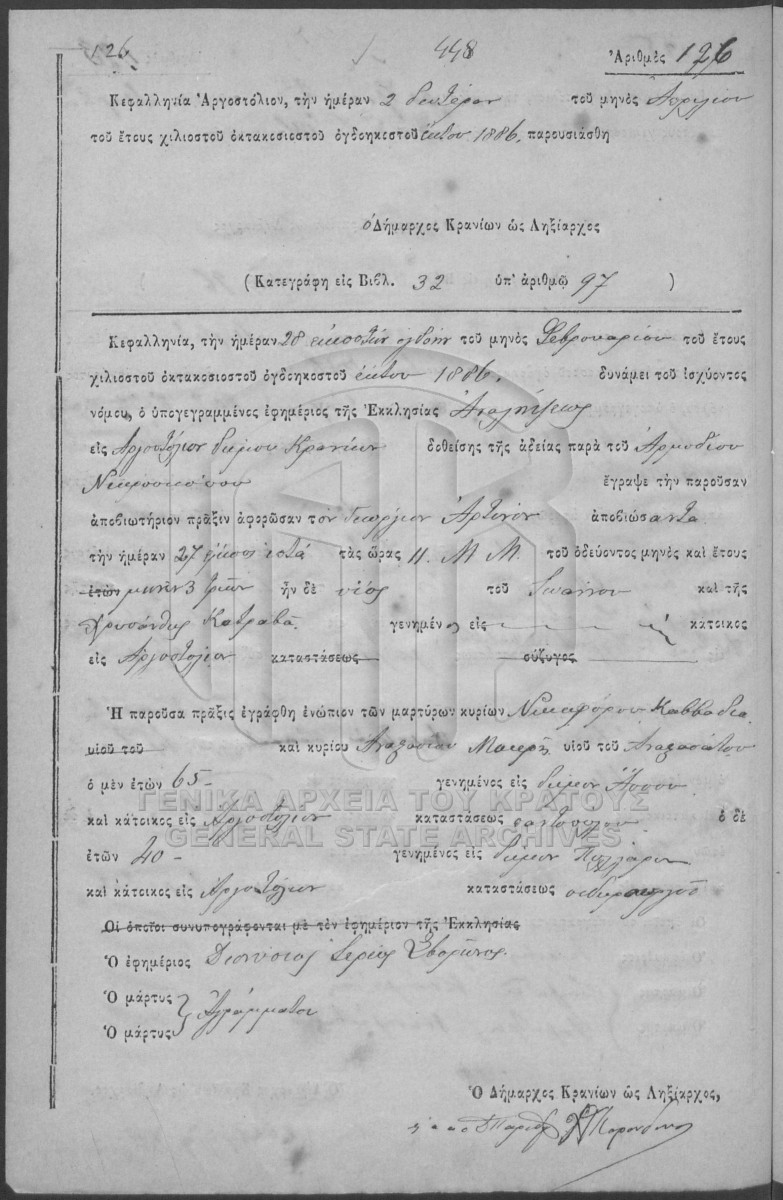 126 448 Ἀριθμὸς 126
Κεφαλληνία Ἀργοστόλιον, τὴν ἡμέραν 2 δευτέραν τοῦ μηνὸς Ἀπριλίου
τοῦ ἔτους χιλιοστοῦ ὀκτακοσιοστοῦ ὀγδοηκοστοῦ ἕκτου 1886. παρουσιάσθη
ὁ Δήμαρχος Κρανίων ὡς Ληξίαρχος
(Κατεγράφη εἰς Βιβλ. 32 ὑπ' ἀριθμῷ 97)
Κεφαλληνία, τὴν ἡμέραν 28 εἰκοστὴν ὀγδόην τοῦ μηνὸς Φεβρουαρίου τοῦ ἔτους
χιλιοστοῦ ὀκτακοσιοστοῦ ὀγδοηκοστοῦ ἕκτου 1886. δυνάμει τοῦ ἰσχύοντος
νόμου, ὁ ὑπογεγραμμένος ἐφημέριος τῆς Ἐκκλησίας Ἀναλήψεως
εἰς Ἀργοστόλιον δήμου Κρανίων δοθείσης τῆς ἀδείας παρὰ τοῦ Ἁρμοδίου
Νεκροσκόπου ἔγραψε τὴν παροῦσαν
ἀποβιωτήριον πρᾶξιν ἀφορῶσαν τὸν Γεώργιον Ἀρτινὸν ἀποβιώσαντα
τὴν ἡμέραν 27 εἴκοσι ἑπτά τὰς ὥρας 11. Μ Μ. τοῦ ὁδεύοντος μηνὸς καὶ ἔτους
ἐτῶν μηνῶν 3 τριῶν ἦν δὲ υἱὸς τοῦ Ἰωάννου καὶ τῆς
Χρυσάνθης Κατραβᾶ γενημένος εἰς κάτοικος
εἰς Ἀργοστόλιον καταστάσεως σύζυγος
Ἡ παροῦσα πρᾶξις ἐγράφθη ἐνώπιον τῶν μαρτύρων κυρίων Νικηφόρου Καββαδία
υἱοῦ τοῦ καὶ κυρίου Ἀναστασίου Μακρῆ υἱοῦ τοῦ
ὁ μὲν ἐτῶν 65 γενημένος εἰς δῆμον
καὶ κάτοικος εἰς Ἀργοστόλιον καταστάσεως παντοπώλου ὁ δὲ
ἐτῶν 40 γενημένος εἰς δῆμον Πυλλάρου
καὶ κάτοικος εἰς Ἀργοστόλιον καταστάσεως σιδηρουργοῦ
Οἱ ὁποῖοι συνυπογράφονται μὲ τὸν ἐφημέριον τῆς Ἐκκλησίας
Ὁ ἐφημέριος Διονύσιος Ἱερεὺς Σβορῶνος.
Ὁ μάρτυς Ἀγράμματοι
Ὁ μάρτυς
Ὁ Δήμαρχος Κρανίων ὡς Ληξίαρχος,
ΓΕΝΙΚΑ ΑΡΧΕΙΑ ΤΟΥ ΚΡΑΤΟΥΣ
GENERAL STATE ARCHIVES